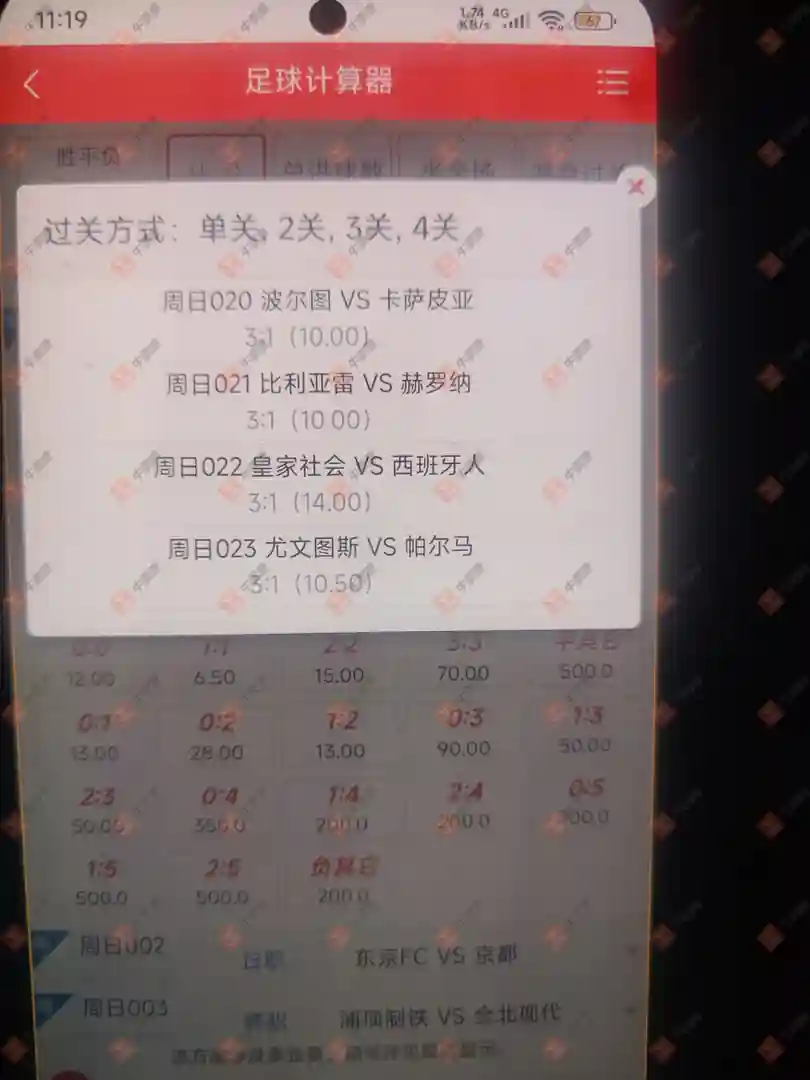 11:19
1.74 KB/s 4G 67
足球计算器
胜平负
过关方式：单关, 2关, 3关, 4关
周日020 波尔图 VS 卡萨皮亚
3:1（10.00）
周日021 比利亚雷 VS 赫罗纳
3:1（10 00）
周日022 皇家社会 VS 西班牙人
3:1（14.00）
周日023 尤文图斯 VS 帕尔马
3:1（10.50）
0:0 1:1 2:2 3:3 平其它
12.00 6.50 15.00 70.00 500.0
0:1 0:2 1:2 0:3 1:3
13.00 28.00 13.00 90.00 50.00
2:3 0:4 1:4 2:4 0:5
50.00 350.0 200.0 200.0
1:5 2:5 负其它
500.0 500.0 200.0
周日002 日职 东京FC VS 京都
周日003 浦项制铁 VS 全北现代